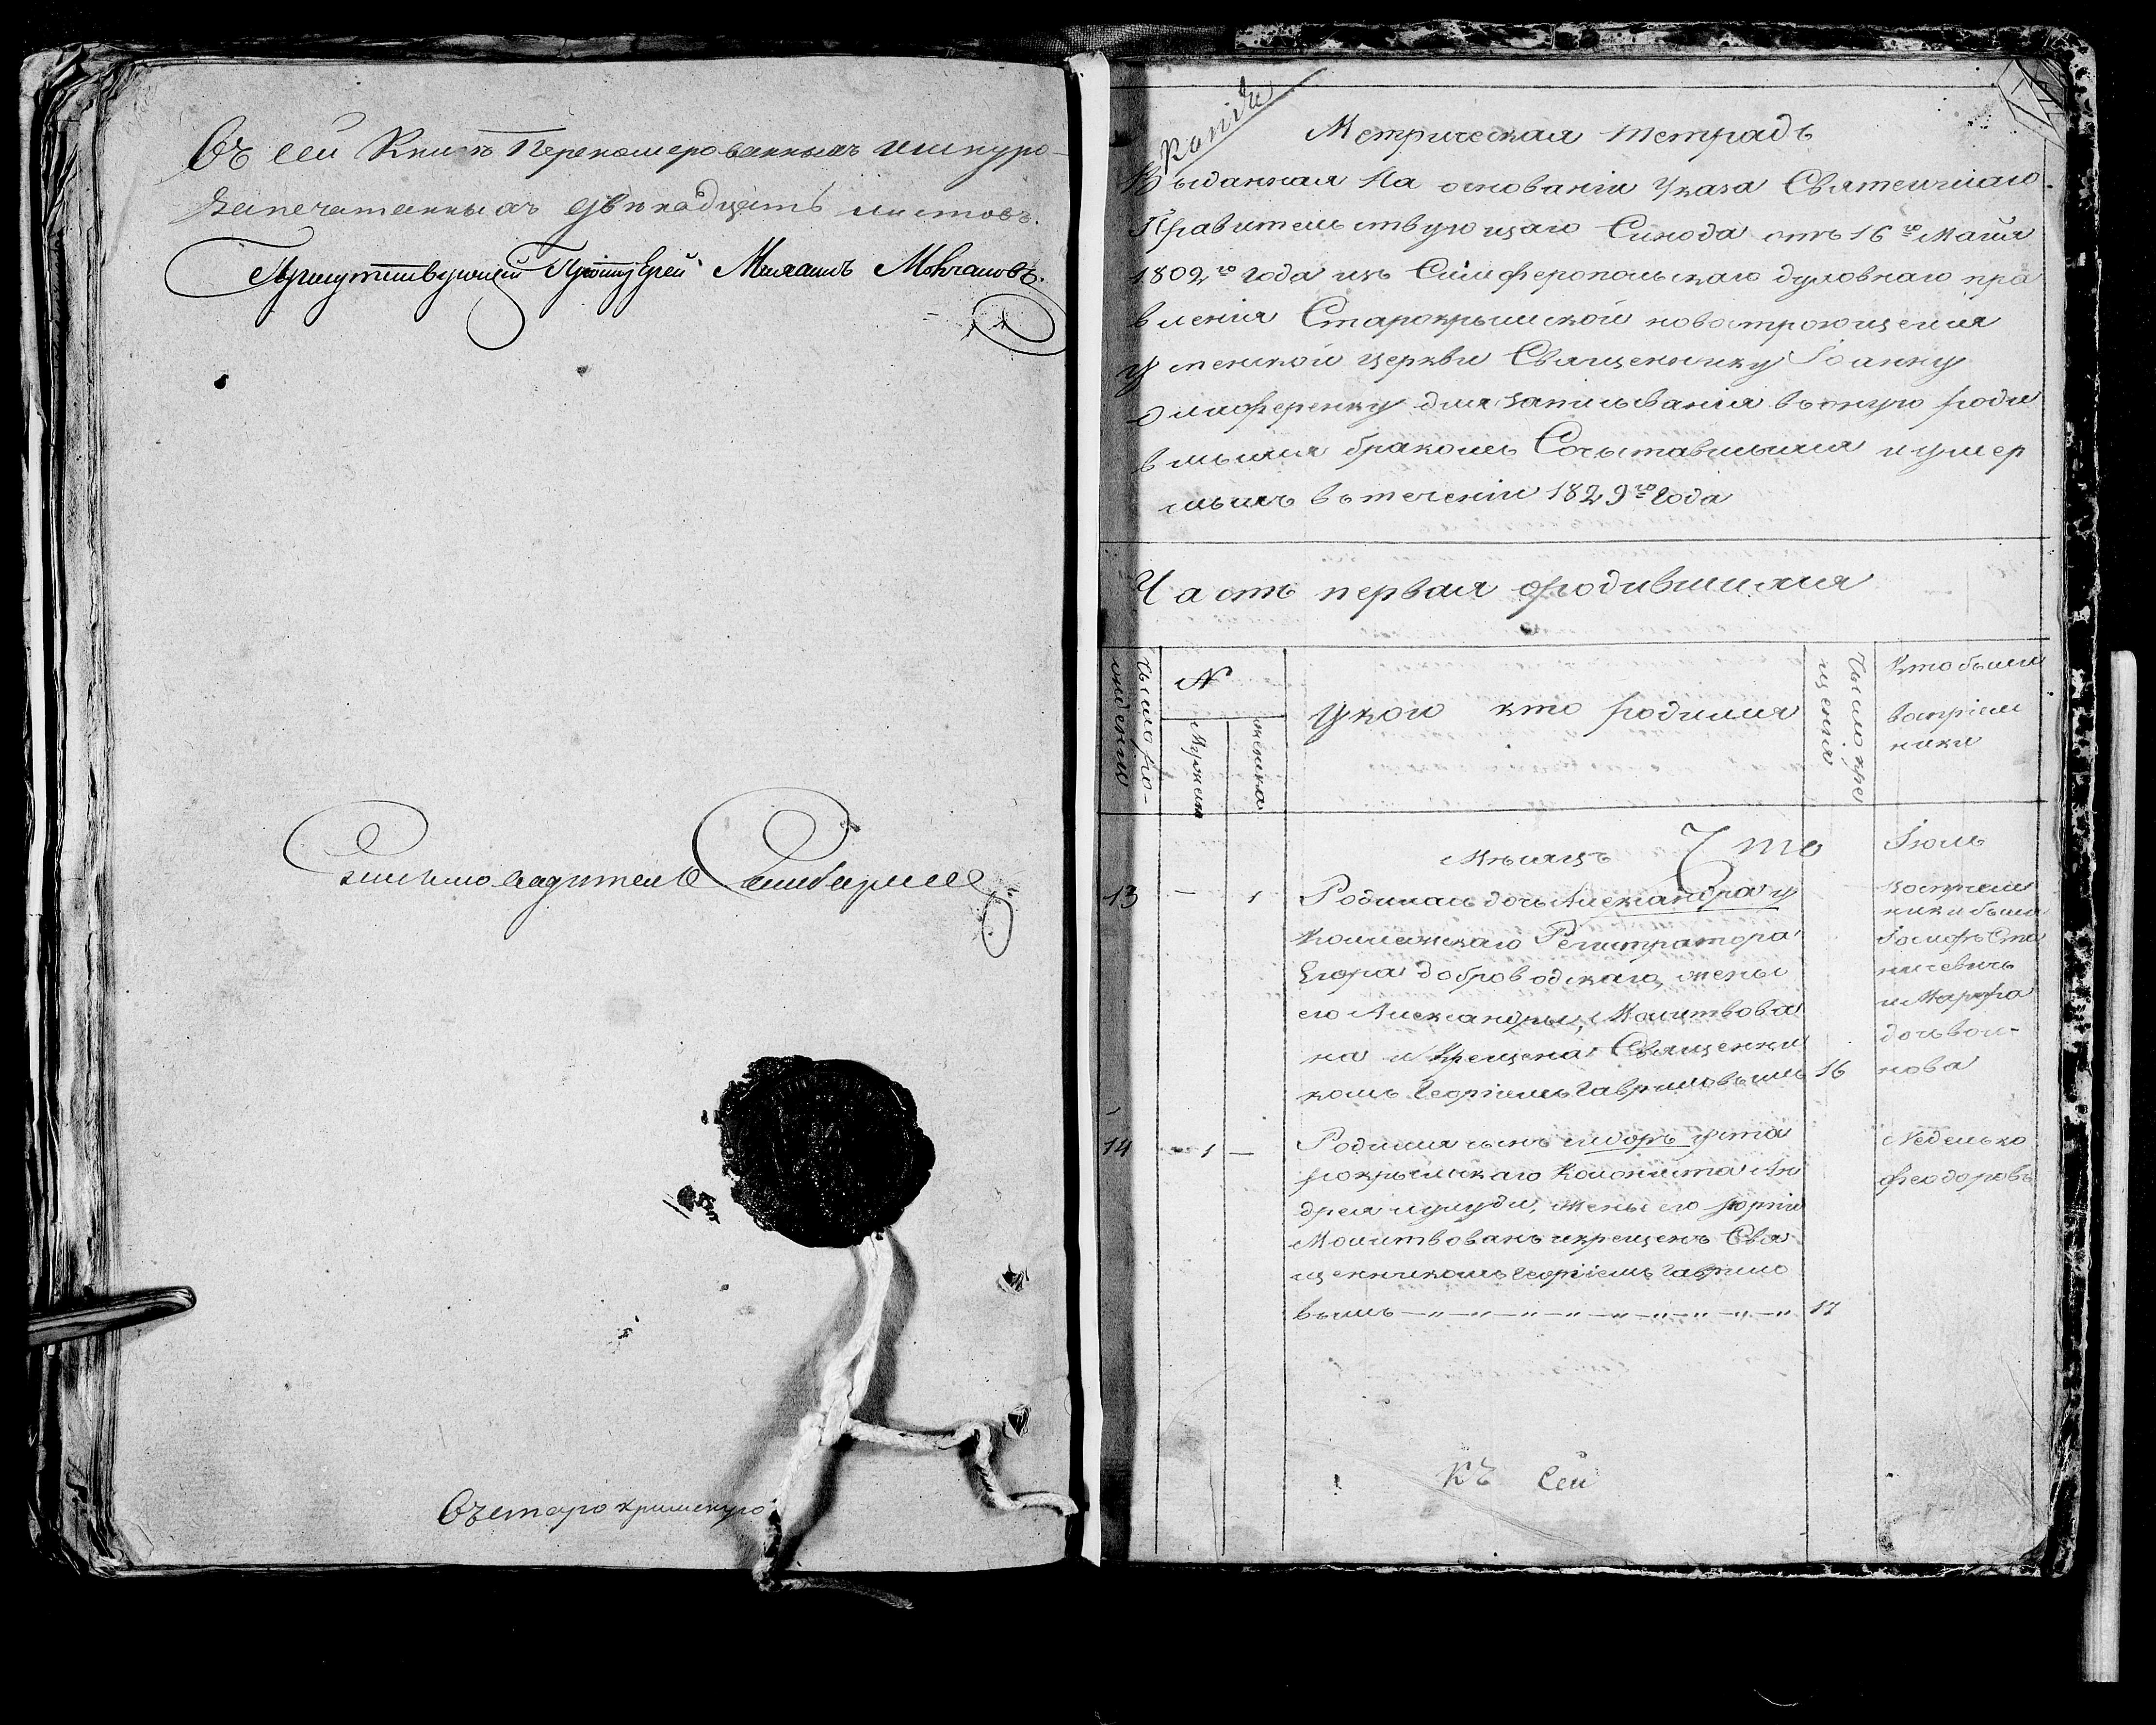 Въ сей Книге Перекомерованныхъ шнуро-
Запечатанныхъ двенадцать листовъ.
Присутствующей Протоіерей Михаилъ Мокчановъ.
Въ старокримскую
Копія
Метрическая тетрадь
Выданная На основаніи Указа Святейшаго
Правительствующаго Синода отъ 16го Маия
1802го года изъ Симферопольскаго духовнаго пра
вленія Старокрымской новостроющейся
Успенской церкви Священнику Іоанну
для записыванія въ оную роди
вшихся бракомъ Сочетавшихся и умер
шихъ въ теченіи 1829го Года
Часть первая о родившихся
Число ро-
жденія
N
Мужеска
женска
У кого кто родился
Число кре
щенія
Кто были
воспріем
ники
Месяцъ Іюль
13 - 1 Родилась дочь Александра у
Коллежскаго Регистратора
Егора доброводскаго, жены
его Александры, Молитвова
на и Крещена Священни
комъ Георгіемъ Гавриловымъ 16
воспріем
ники были
Іосифъ Ста
ничевичь
и Марфа
дочь вои-
нова
14 - 1 - Родился сынъ сидоръ у ста
рокрымскаго Колониста Ан
дрея жены его
Молитвованъ и крещенъ Свя
щенникомъ Георгіемъ Гаврило
вымъ - " - " - " - " - " - " - " - " 17
Неделько
феодоровъ
Къ Сей